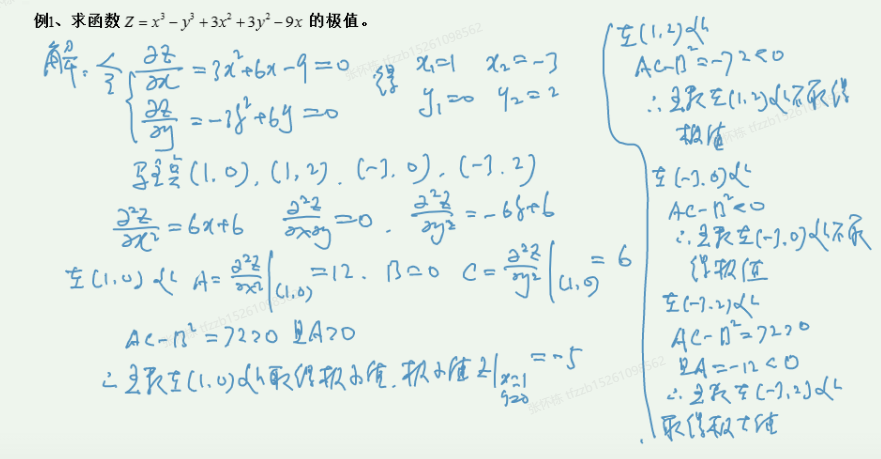 例1、求函数 Z = x³ − y³ + 3x² + 3y² − 9x 的极值。
解: 令 { ∂Z/∂x = 3x² + 6x − 9 = 0
∂Z/∂y = −3y² + 6y = 0
得 x₁=1 x₂=−3
y₁=0 y₂=2
驻点(1,0), (1,2), (−3,0), (−3,2)
∂²Z/∂x² = 6x+6 ∂²Z/∂x∂y = 0. ∂²Z/∂y² = −6y+6
在(1,0)处 A = ∂²Z/∂x²|(1,0) = 12. B=0 C = ∂²Z/∂y²|(1,0) = 6
AC−B² = 72>0 且A>0
∴函数在(1,0)处取得极小值. 极小值 Z|x=1 y=0 = −5
在(1,2)处
AC−B² = −72<0
∴函数在(1,2)处不取得
极值
在(−3,0)处
AC−B²<0
∴函数在(−3,0)处不取
得极值
在(−3,2)处
AC−B²=72>0
且A=−12<0
∴函数在(−3,2)处
取得极大值
张怀栋 tfzzb15261098562